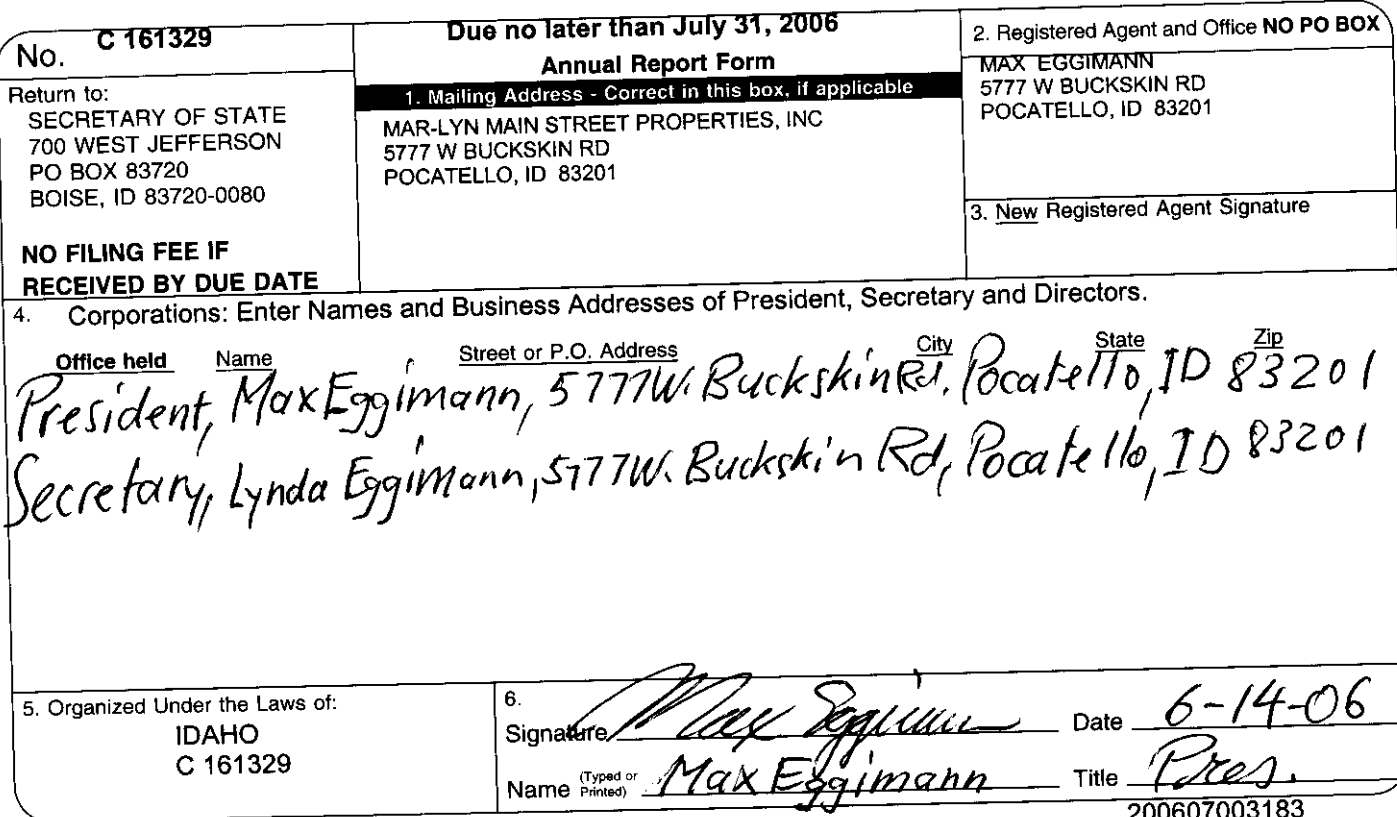 No. C 161329
Return to:
SECRETARY OF STATE
700 WEST JEFFERSON
PO BOX 83720
BOISE, ID 83720-0080
NO FILING FEE IF
RECEIVED BY DUE DATE
Due no later than July 31, 2006
Annual Report Form
1. Mailing Address - Correct in this box, if applicable
MAR-LYN MAIN STREET PROPERTIES, INC
5777 W BUCKSKIN RD
POCATELLO, ID 83201
2. Registered Agent and Office NO PO BOX
MAX EGGIMANN
5777 W BUCKSKIN RD
POCATELLO, ID 83201
3. New Registered Agent Signature
4. Corporations: Enter Names and Business Addresses of President, Secretary and Directors.
Office held Name Street or P.O. Address City State Zip
President, Max Eggimann, 5777 W. Buckskin Rd. Pocatello, ID 83201
Secretary, Lynda Eggimann, 5777 W. Buckskin Rd, Pocatello, ID 83201
5. Organized Under the Laws of:
IDAHO
C 161329
6.
Signature Max Eggimann Date 6-14-06
Name (Typed or Printed) Max Eggimann Title Pres.
200607003183